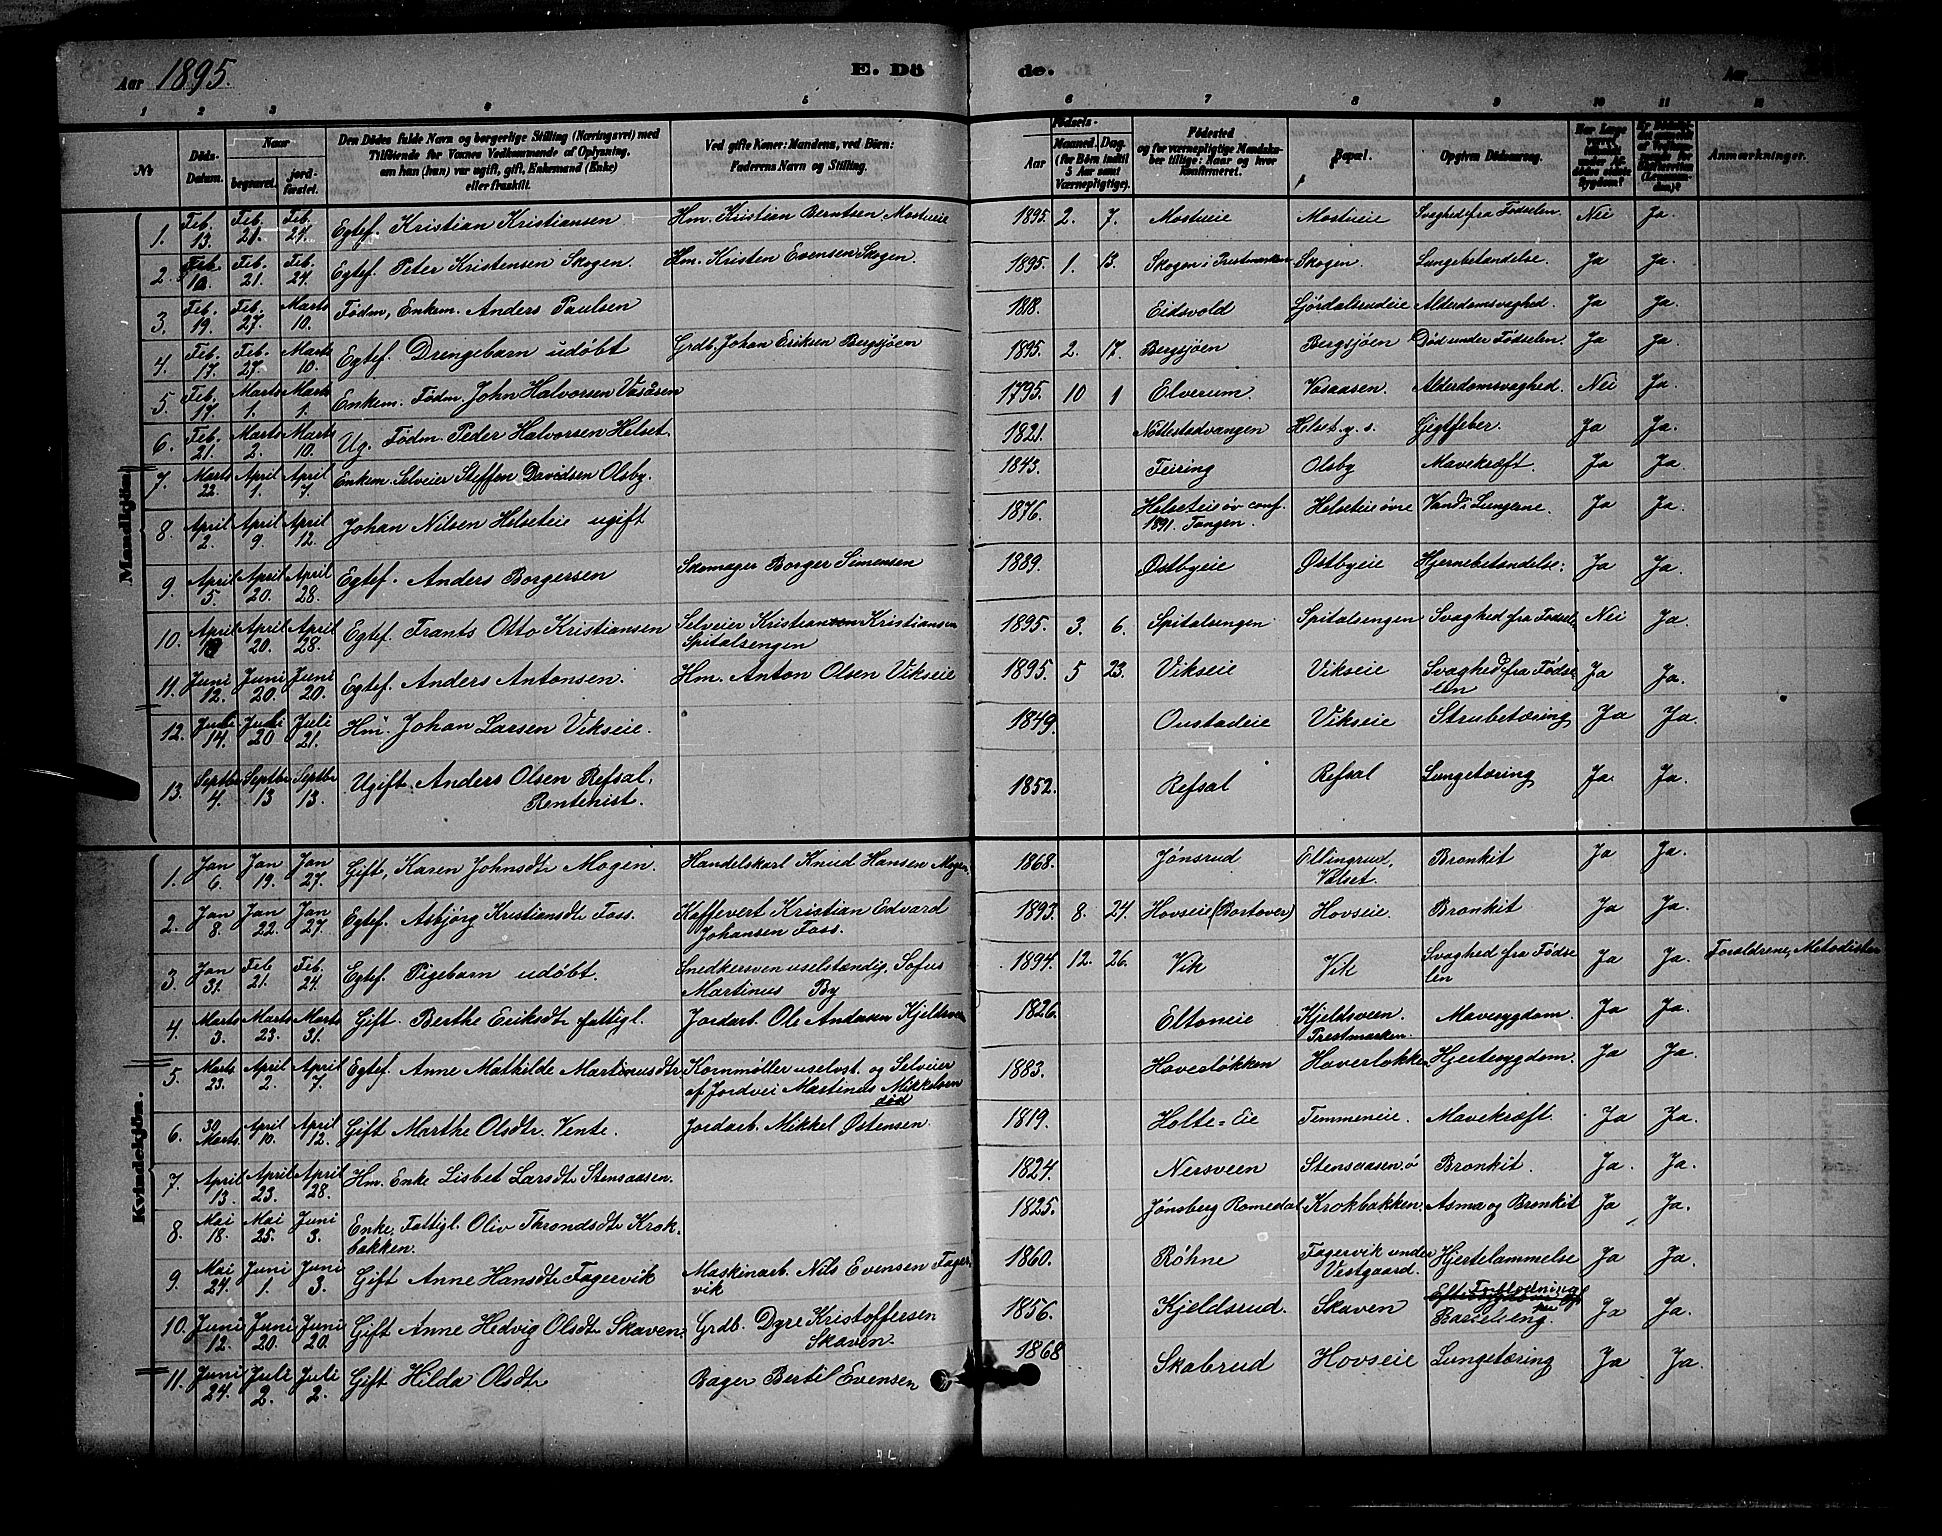 Aar 1895. E. Dö de. Aar
1 2 3 4 5 6 7 8 9 10 11 12
No Döds-Datum. Naar begravet. jordfæstet. Den Dödes fulde Navn og borgerlige Stilling (Næringsvei) med Tilföiende for Voxnes Vedkommende af Oplysning, om han (hun) var ugift, gift, Enkemand (Enke) eller fraskilt. Ved gifte Koner: Mandens, ved Börn: Faderens Navn og Stilling. Födsels- Aar Maaned. Dag. (for Börn indtil 5 Aar samt Værnepligtige). Födested og for værnepligtige Mandskaber tillige: Naar og hvor konfirmeret. Bopæl. Opgiven Dödsaarsag. Anmærkninger.
Mandkjön.
1. Feb. 13. Feb. 21. Feb. 24. Egtef. Kristian Kristiansen Hm. Kristian Berntsen Mostueie 1895. 2. 7. Mostueie Mostueie Svaghed fra Fødselen Nei Ja.
2. Feb. Feb. 21. Feb. 24. Egtef. Peter Kristensen Skogen. Hm. Kristen Evensen Skogen 1895. 1. 13. Skogen i Prestmarken Skogen. Lungebetændelse. Ja Ja.
3. Feb. 19. Feb. 27. Marts 10. Fødm, Enkem. Anders Paulsen 1818. Eidsvold Alderdomsvaghed. Ja Ja.
4. Feb. 17. Feb. 27. Marts 10. Egtef. Drengebarn udøbt Grdb. Johan Eriksen Bergsjøen 1895. 2. 17. Bergsjøen Bergsjøen Død under Fødselen. Ja Ja.
5. Feb. 17. Marts 1. Marts 1. Enkem. Fødm. John Halvorsen Vasåsen 1795. 10 1 Elverum. Vasaasen. Alderdomsvaghed. Nei Ja.
6. Feb. 21. Marts 2. Marts 10. Ug. Fødm. Peder Halvorsen Helset. 1821. Nøttestadvangen Helset. y. s. Gigtfeber. Ja Ja.
7. Marts 22. April 1. April 7. Enkem. Selveier Steffen Davidsen Olsby. 1843. Feiring Olsby Mavekræft. Ja Ja.
8. April 2. April 9. April 12. Johan Nilsen Helseteie ugift 1876. Helseteie øv conf. 1891. Tangen. Helseteie øvre Vand i Lungerne. Ja Ja.
9. April 5. April 20. April 28. Egtef. Anders Borgersen Skomager Borger Simensen 1889. Østbyeie Østbyeie Hjernebetændelse. Ja Ja.
10. April April 20. April 28. Egtef. Frants Otto Kristiansen Selveier Kristian Kristiansen Spitalsengen 1895. 3. 6. Spitalsengen Spitalsengen Svaghed fra Fødselen Nei Ja.
11. Juni 12. Juni 20. Juni 20. Egtef. Anders Antonsen. Hm. Anton Olsen Vikseie 1895. 5 23. Vikseie Vikseie Svaghed fra Fødselen Ja Ja.
12. Juli 14. Juli 20 Juli 21. Hm. Johan Larsen Vikseie. 1849. Onstadeie Vikseie Strubetæring Ja Ja.
13. Septbr 4. Septbr 13 Septbr 13. Ugift. Anders Olsen Refsal. Rentenist. 1852. Refsal Refsal Lungetæring Ja Ja.
Kvindekjön.
1. Jan 6. Jan 19. Jan 27. Gift, Karen Johnsdtr Mogen. Handelskarl Knud Hansen Mogen. 1868. Jønsrud Ellingrud, Valset. Bronkit Ja Ja.
2. Jan 8. Jan 22. Jan 27. Egtef. Asbjørg Kristiansdtr Foss. Kaffevert Kristian Edvard Johansen Foss. 1893. 8. 24. Hovseie (Bortover) Hovseie. Bronkit Ja Ja.
3. Jan 31. Feb 21. Feb. 24. Egtef. Pigebarn udøbt. Snedkersven uselstændig, Sofus Martinus By 1894. 12. 26. Vik Vik Svaghed fra Fødselen Ja Ja. Forældrene, Metodister
4. Marts 3. Marts 23. Marts 31. Gift. Berthe Eriksdtr fattigl. Jordarb. Ole Andersen Kjeldsveen 1826. Eltoneie Kjeldsveen. Prestmarken. Mavesygdom. Ja Ja.
5. Marts 23. April 2. April 7. Egtef. Anne Mathilde Martinusdtr. Kornmøller uselvst. og Selveier af Jordvei Martinus Mikkelsen død 1883. Hoverløkken Hoverløkken Hjertesygdom. Ja Ja.
6. 30 Marts. April 10. April 12. Gift Marthe Olsdtr. Vente. Jordarb. Mikkel Østensen 1819. Holte=Eie Temmeneie. Mavekræft. Ja Ja.
7. April 13. April 23. April 28. Hm. Enke Lisbet Larsdtr Stensaasen. 1824. Nersveen Stensaasen. ø Bronkit. Ja. Ja.
8. Mai 18. Mai 25. Juni 3. Enke, Fattigl. Oliv Throndsdtr Krokbakken. 1825. Jønsberg Romedal Krokbakken. Asma og Bronkit Ja Ja.
9. Mai 24. Juni 1. Juni 3. Gift Anne Hansdtr Fagervik Maskinarb. Nils Evensen Fagervik 1860. Røhne Fagervik under Vestgaard. Hjertelammelse Ja Ja.
10. Juni 12. Juni 20. Juni 20. Gift Anne Hedvig Olsdtr Skaven. Grdb. Dyre Kristoffersen Skaven. 1856. Kjeldsrud. Skaven Forblødning Barselseng. Ja Ja.
11. Juni 24. Juli 2. Juli 2. Gift Hilda Olsdtr Bager Bertil Evensen 1868 Skabrud Hovseie Lungetæring Ja Ja.